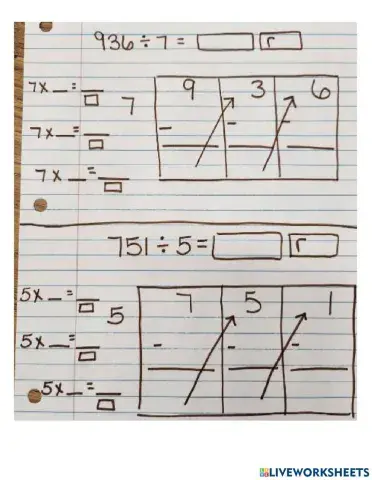 936 ÷ 7 = r
7x _ = _
7 9 3 6
7x _ = _
7x _ = _
751 ÷ 5 = r
5x _ = _
5 7 5 1
5x _ = _
5x _ = _
LIVEWORKSHEETS